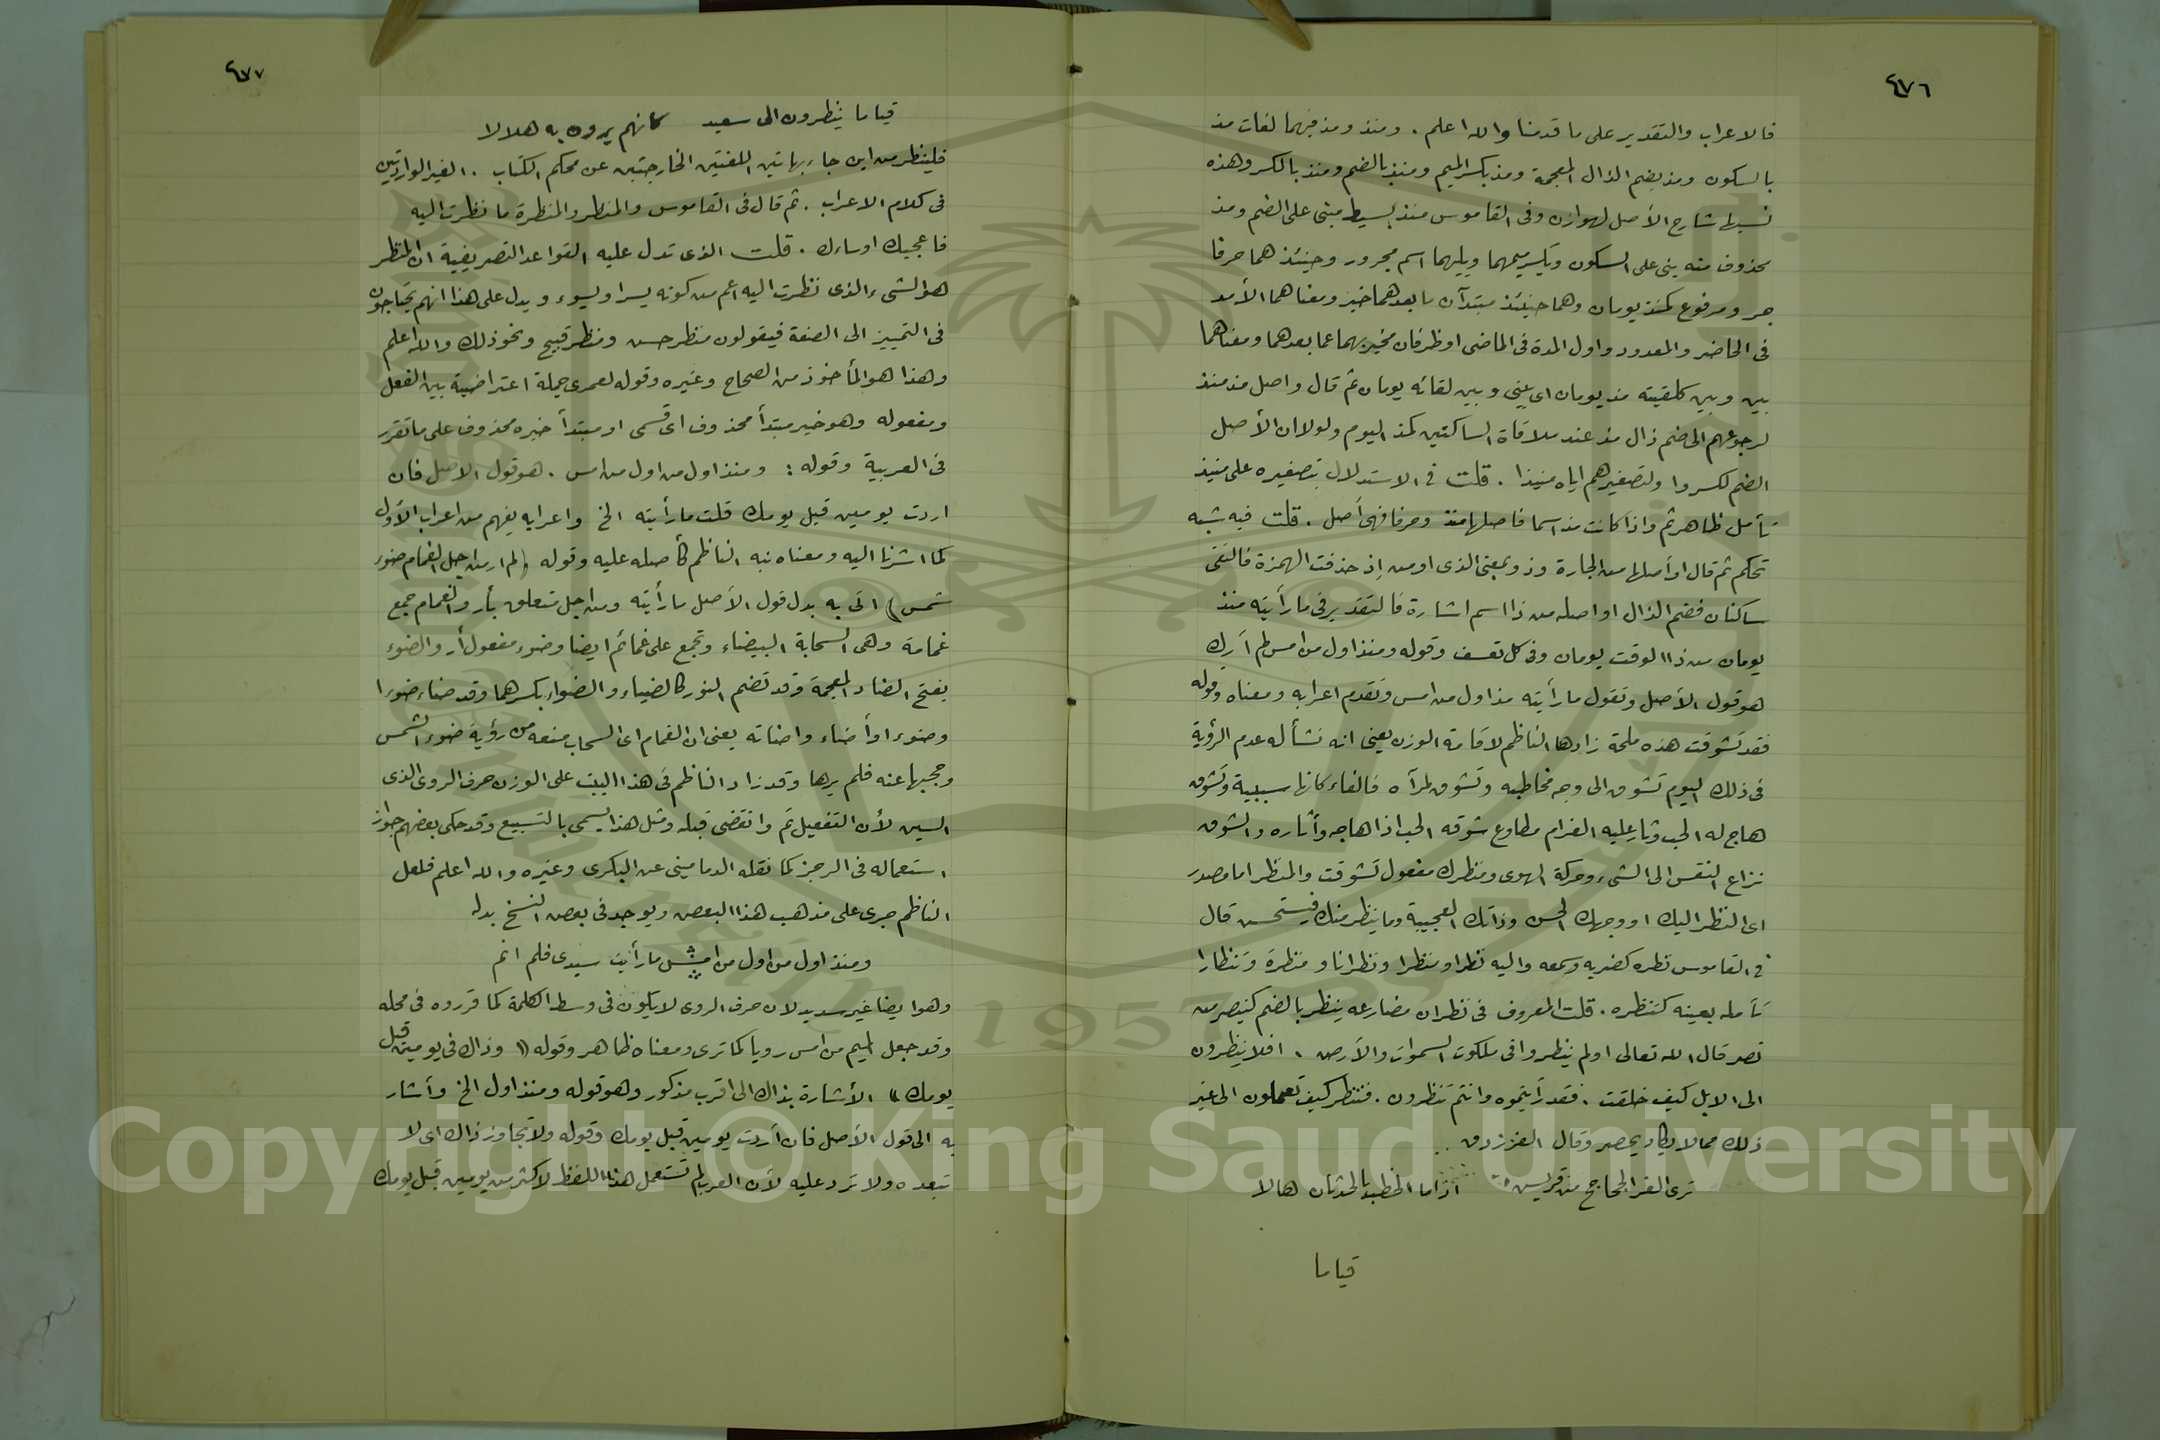 ٤٧٦
فالاعراب والتقدير على ما قدمنا والله اعلم . ومنذ ومذ فيهما لغات مذ
بالسكون ومذ بضم الذال المعجمة ومذ بكسر الميم ومنذ بالضم ومنذ بالكسر وهذه
نسبها شارح الأصل لهوازن وفى القاموس منذ بسيط مبنى على الضم ومذ
محذوف منه يبنى على السكون وتكسر ميمهما ويليهما اسم مجرور وحينئذ هما حرفا
جر ومرفوع كمنذ يومان وهما حينئذ مبتدآن ما بعدهما خبر ومعناهما الأمد
فى الحاضر والمعدود واول المدة فى الماضى او ظرفان مخبر بهما عما بعدهما ومعناهما
بين وبين كلقيته منذ يومان اى بينى وبين لقائه يومان ثم قال واصل مذ منذ
لرجوعهم الى ضم ذال مذ عند ملاقاة الساكنين كمذ اليوم ولولا ان الأصل
الضم لكسروا ولتصغيرهم اياه منيذا . قلت فى الاستدلال بتصغيره على منيذ
تأمل ظاهر ثم واذا كانت مذ اسما فاصلها منذ وحرفا فهى أصل . قلت فيه شبه
تحكم ثم قال او أصلها من الجارة وذو بمعنى الذى او من إذ حذفت الهمزة فالتقى
ساكنان فضم الذال او اصله من ذا اسم اشارة فالتقدير فى ما رأيته منذ
يومان من ذا الوقت يومان وفى كل تعسف وقوله ومنذ اول من امس لم أرك
هو قول الأصل وتقول ما رأيته مذ اول من امس وتقدم اعرابه ومعناه وقوله
فقد تشوقت هذه ملحة زادها الناظم لاقامة الوزن يعنى انه نشأ له عدم الرؤية
فى ذلك اليوم تشوق الى وجه مخاطبه وتشوق لمرآه فالفاء كانها سببية وتشوق
هاج له الحب وثار عليه الغرام مطاوع شوقه الحب اذا هاجه وأثاره والشوق
نزاع النفس الى الشىء وحركة الهوى ومنظرك مفعول تشوقت والمنظر اما مصدر
اى النظر اليك او وجهك الحسن وذاتك العجيبة وما ينظر منك فيستحسن قال
فى القاموس نظره كضربه وسمعه واليه نظرا ومنظرا ونظرانا ومنظرة وتنظارا
تأمله بعينه كتنظره . قلت المعروف فى نظر ان مضارعه ينظر بالضم كينصر من
نصر قال الله تعالى اولم ينظروا فى ملكوت السموات والأرض . افلا ينظرون
الى الابل كيف خلقت . فقد رأيتموه وانتم تنظرون . فننظر كيف تعملون الى غير
ذلك مما لا يكاد يحصر وقال الفرزدق
ترى الغر الجحاجح من قريش اذا ما الخطب بالحدثان هالا
قياما
٤٧٧
قياما ينظرون الى سعيد كانهم يرون به هلالا
فلينظر من اين جاء بهاتين اللغتين الخارجتين عن محكم الكتاب . الغير الواردتين
فى كلام الاعراب . ثم قال فى القاموس والمنظر والمنظرة ما نظرت اليه
فاعجبك او ساءك . قلت الذى تدل عليه القواعد التصريفية ان المنظر
هو الشىء الذى نظرت اليه اعم من كونه يسر او يسوء ويدل على هذا انهم يحتاجون
فى التمييز الى الصفة فيقولون منظر حسن ومنظر قبيح ونحو ذلك والله اعلم
وهذا هو المأخوذ من الصحاح وغيره وقوله لعمرى جملة اعتراضية بين الفعل
ومفعوله وهو خبر مبتدأ محذوف اى قسمى او مبتدأ خبره محذوف على ما تقرر
فى العربية وقوله : ومنذ اول من اول من امس . هو قول الاصل فان
اردت يومين قبل يومك قلت ما رأيته الخ واعرابه يفهم من اعراب الأول
كما اشرنا اليه ومعناه نبه الناظم كأصله عليه وقوله (لم ار من اجل الغمام ضوء
شمس) اتى به بدل قول الأصل ما رأيته ومن اجل متعلق بأر والغمام جمع
غمامة وهى السحابة البيضاء وتجمع على غمائم ايضا وضوء مفعول أر والضوء
بفتح الضاد المعجمة وقد تضم النور كالضياء والضواء بكسرهما وقد ضاء ضوءا
وضوء او أضاء واضاته يعنى ان الغمام اى السحاب منعه من رؤية ضوء الشمس
وحجبها عنه فلم يرها وقد زاد الناظم فى هذا البيت على الوزن حرف الروى الذى
السين لأن التفعيل تم وانقضى قبله ومثل هذا يسمى بالتسبيع وقد حكى بعضهم جواز
استعماله فى الرجز كما نقله الدمامينى عن البكرى وغيره والله اعلم فلعل
الناظم جرى على مذهب هذا البعض ويوجد فى بعض النسخ بدله
ومنذ اول من اول من امس ما رأيت سيدى فلم انم
وهو ايضا غير سديد لان حرف الروى لا يكون فى وسط الكلمة كما قرروه فى محله
وقد جعل الميم من امس رويا كما ترى ومعناه ظاهر وقوله (وذاك فى يومين قبل
يومك) الأشارة بذاك الى اقرب مذكور وهو قوله ومنذ اول الخ وأشار
به الى قول الأصل فان أردت يومين قبل يومك وقوله ولا تجاوز ذاك اى لا
تتعده ولا تزد عليه لأن العرب لم تستعمل هذا اللفظ لاكثر من يومين قبل يومك
Copyright © King Saud University
1957